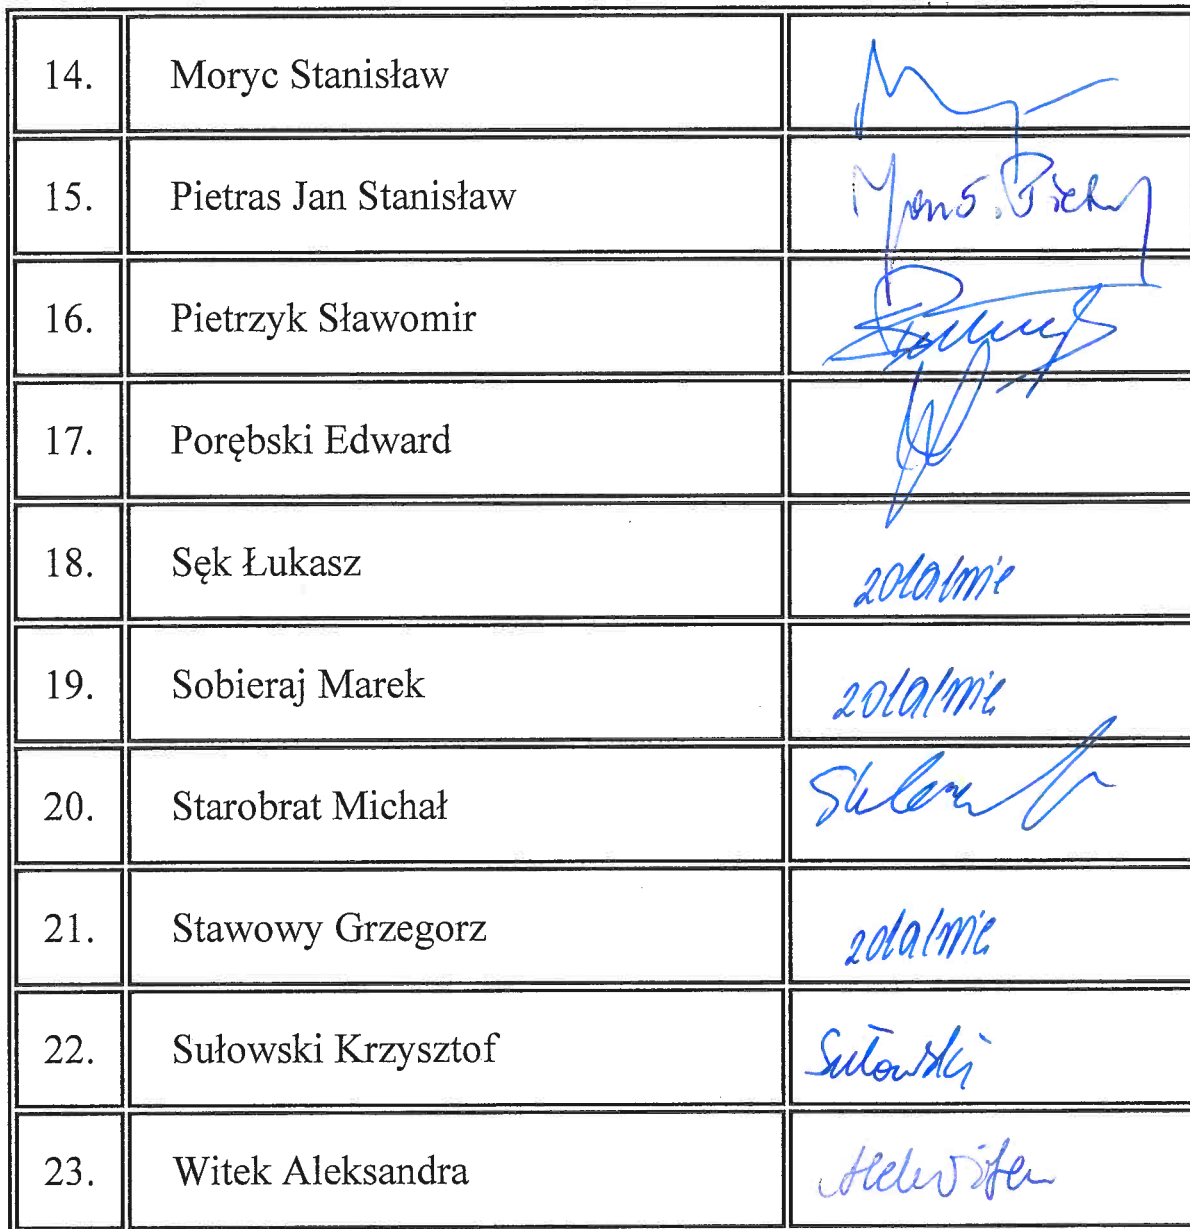 14. Moryc Stanisław
15. Pietras Jan Stanisław Jan S. Pietr
16. Pietrzyk Sławomir
17. Porębski Edward
18. Sęk Łukasz zdalnie
19. Sobieraj Marek zdalnie
20. Starobrat Michał
21. Stawowy Grzegorz zdalnie
22. Sułowski Krzysztof Sułowski
23. Witek Aleksandra